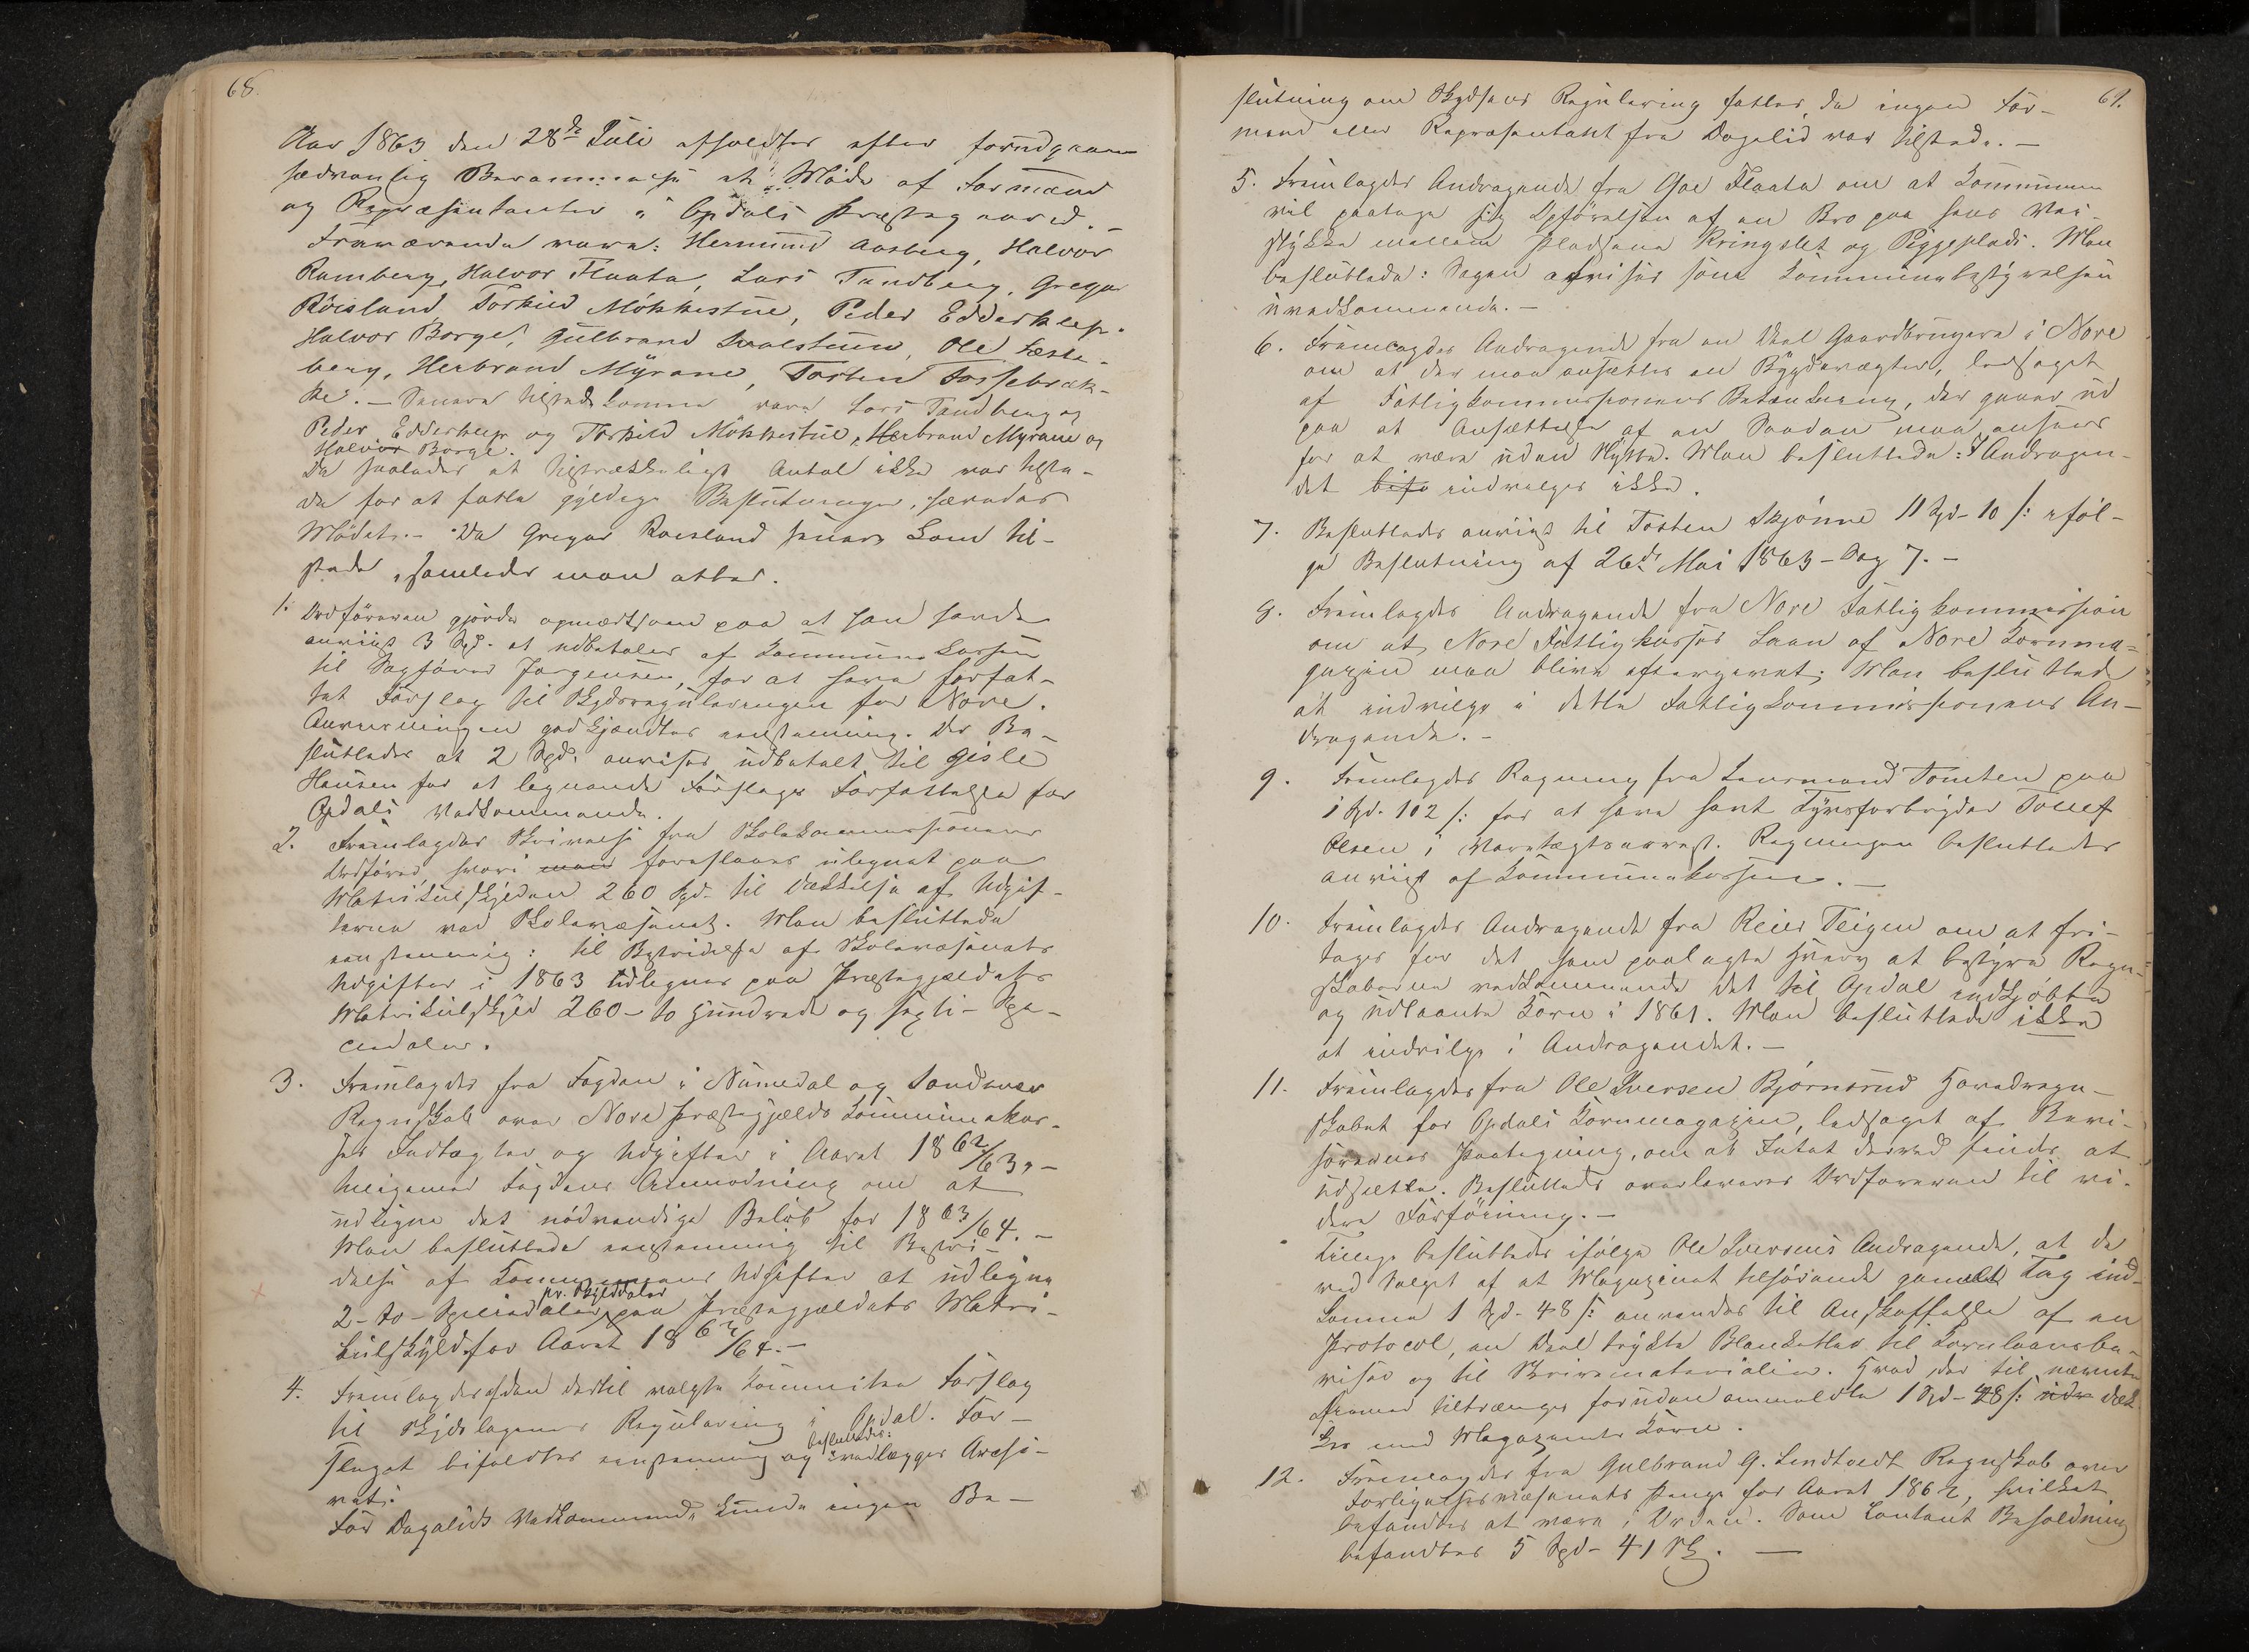 68.
Aar 1863 den 28de Juli afholdtes efter forudgaaen
sædvanlig Berammelse et Möde af Formænd
og Repræsentanter i Opdals Præstegaard. –
Fremværende vare: Hermund Aasberg, Halvor
Ramberg, Halvor Flaata, Lars Tandberg, Gregar
Röisland, Torkild Mökkestue, Peder Edderklep.
Halvor Borge, Gulbrand Sevalstuen, Ole Læste-
berg, Herbrand Myrane, Torsten Fossebræk-
ke. – Senere tilstedekomne vare Lars Tandberg og
Peder Edderklep og Torkild Mökkestue, Herbrand Myrane og
Halvor Borge.
Da saaledes et tilstrækkeligt Antal ikke var tilste-
de for at fatte gyldige Beslutninger, hævedes
Mödet. – Da Gregar Roisland senere kom til-
stede, samledes man atter.
1. Ordföreren gjorde opmærksom paa at han havde
anviist 3 Spd. at udbetales af Kommunekassen
til Sagförer Jørgensen, for at have forfat-
tet Forslag til Skydsreguleringen for Nore.
Anvisningen godkjendtes eenstemmig. Der Be-
sluttedes at 2 Spd. anvises udbetalt til Gisle
Hansen for et lignende Forslags Forfattelse for
Opdals Vedkommende.
2. Fremlagdes Skrivelse fra Skolekommissionens
Ordförer, hvori man foreslaaes udlignet paa
Matrikulskylden 260 Spd. til Dækkelse af Udgif-
terne ved Skolevæsenet. Man besluttede
eenstemmig: til Bestridelse af Skolevæsenets
Udgifter i 1863 udlignes paa Præstegjeldets
Matrikulskyld 260 – to Hundrede og sexti – Spe-
ciedaler.
3. Fremlagdes fra Fogden i Numedal og Sandsvær
Regnskab over Nore Præstegjelds Kommunekas-
ses Indtægter og Udgifter i Aaret 1862/63, –
tilligemed Fogdens Anmodning om at
udligne det nödvendige Belöb for 1863/64. –
Man besluttede eenstemmig til Bestri-
delse af Kommunens Udgifter at udligne
pr. Skylddaler
2 – to – Speciedaler paa Præstegjeldets Matri-
kulskyld for Aaret 1863/64. –
4. Fremlagdes af den dertil valgte Kommitee Forslag
til Skydslagenes Regulering i Opdal. For-
besluttedes:
slaget bifaldtes eenstemmig og vedlægges Archi-
vet.
For Dagalids Vedkommende kunde ingen Be-
69.
slutning om Skydsens Regulering fattes, da ingen For-
mand eller Repræsentant fra Dagalid var tilstede. –
5. Fremlagdes Andragende fra Goe Flaata om at Kommunen
vil paatage sig Opförelsen af en Bro paa hans Vei-
stykke mellem Pladsene Kringslet og Piggeplads. Man
besluttede: Sagen afvises som Kommunebestyrelsen
uvedkommende. –
6. Fremlagdes Andragende fra en Deel Gaardbrugere i Nore
om at der maa ansættes en Bygdevægter, ledsaget
af Fattigkommissionens Betænkning, der gaaer ud
paa at Ansættelse af en Saadan maa ansees
for at være uden Nytte. Man besluttede: Andragen-
det bifa indvilges ikke.
7. Besluttedes anviist til Tosten Skjönne 11 Spd – 10 s: iföl-
ge Beslutning af 26de Mai 1863 – Sag 7. –
8. Fremlagdes Andragende fra Nore Fattigkommission
om at Nore Fattigkasses Laan af Nore Kornma-
gazin maa blive eftergivet; Man besluttede
at indvilge i dette Fattigkommissionens An-
dragende. –
9. Fremlagdes Regning fra Lensmand Tomten paa
1 Spd. 102 s: for at have havt Tyvsforbryder Tollef
Olsen i Varetægtsarrest. Regningen besluttedes
anviist af Kommunekassen. –
10. Fremlagdes Andragende fra Reier Teigen om at fri-
tages for det ham paalagte Hverv at bestyre Regn-
skaberne vedkommende det til Opdal indkjöbte
og udlaante Korn i 1861. Man besluttede ikke
at indvilge i Andragendet. –
11. Fremlagdes fra Ole Iversen Björnerud Hovedregn-
skabet for Opdals Kornmagazin, ledsaget af Revi-
sorernes Paategning, om at Intet derved findes at
udsætte. Besluttedes overleveres Ordföreren til vi-
dere Forföining. –
Tillige besluttedes ifölge Ole Iversens Andragende, at de
ved Salget af et Magazinet tilhörende gammelt Tag ind-
komne 1 Spd – 48 s: anvendes til Anskaffelse af en
Protocol, en Deel trykte Blanketter til Kornlaansbe-
viser og til Skrivematerialier. Hvad der til nævnte
Öiemed tiltrænges foruden anmeldte 1 Spd – 48 s: dæk-
kes med Magazinets Korn.
12. Fremlagdes fra Gulbrand G. Lindtvedt Regnskab over
Forligelsesvæsenets Penge for Aaret 1862, hvilket
befandtes at være i Orden. Som Contant Beholdning
befandtes 5 Spd – 41 Sk. –